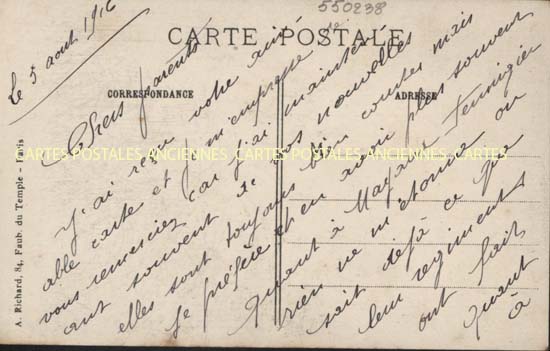 550238
CARTE POSTALE
CORRESPONDANCE
ADRESSE
Le 5 août 1916
Chers parents
J'ai reçu votre aimable
carte et je m'empresse de
vous remercier car j'ai maintenant
souvent de vos nouvelles
elles sont toujours bien courtes mais
je préfère et en avoir plus souvent
Quant à
rien ne m'étonne on
sait déjà ce que
leur régiment
ont fait
Quant
à
CARTES POSTALES ANCIENNES CARTES POSTALES ANCIENNES CARTES POSTALES ANCIENNES
A. Richard, 84, Faub. du Temple - Paris